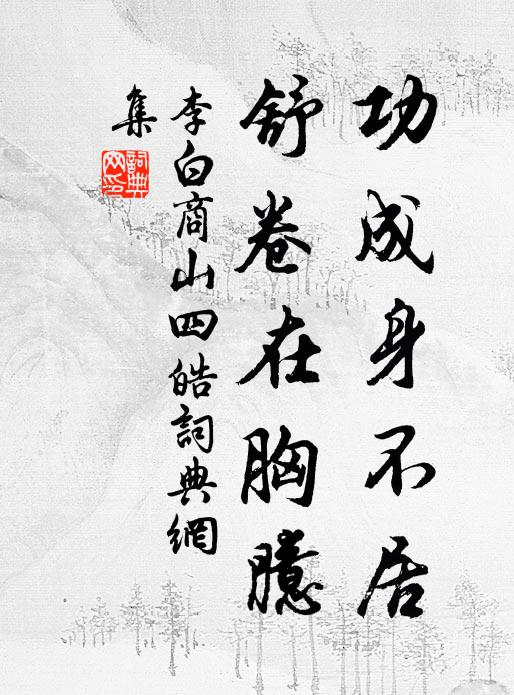 功成身不居
舒卷在胸臆
李白商山四皓詞典網
集
詞典
网印